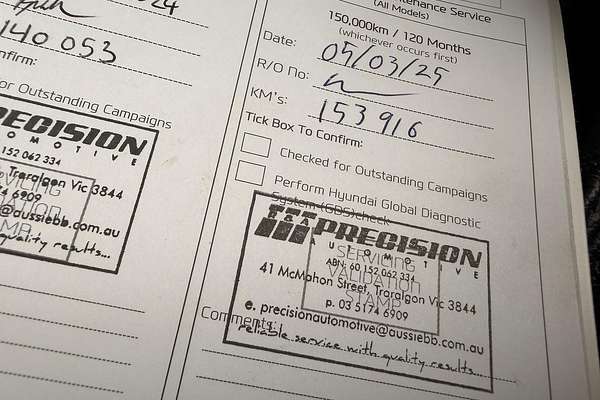 24
140 053
nfirm:
for Outstanding Campaigns
PRECISION
OMOTIVE
152 062 334
Traralgon Vic 3844
74 6909
@aussiebb.com.au
quality results...
ntenance Service
(All Models)
150,000km / 120 Months
(whichever occurs first)
Date: 05/03/25
R/O No:
KM's: 153 916
Tick Box To Confirm:
Checked for Outstanding Campaigns
Perform Hyundai Global Diagnostic
System (GDS) check
PRECISION
AUTOMOTIVE
SERVICING
ABN: 60 152 062 334
VALIDATION
41 McMahon Street, Traralgon Vic 3844
STAMP
p. 03 5174 6909
e. precisionautomotive@aussiebb.com.au
Comments:
reliable service with quality results...